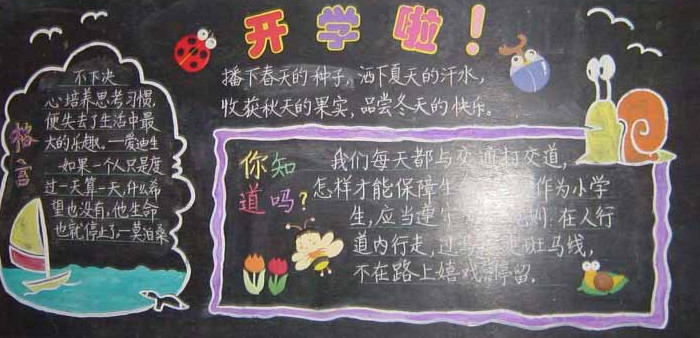 开学啦！
播下春天的种子，洒下夏天的汗水，
收获秋天的果实，品尝冬天的快乐。
格言
不下决
心培养思考习惯，
便失去了生活中最
大的乐趣。—爱迪生
如果一个人只是度
过一天算一天，什么希
望也没有，他生命
也就停止了—莫泊桑
你知
道吗？
我们每天都与交通打交道，
怎样才能保障生 作为小学
生，应当遵守 则：在人行
道内行走，过 走斑马线，
不在路上嬉戏 停留。